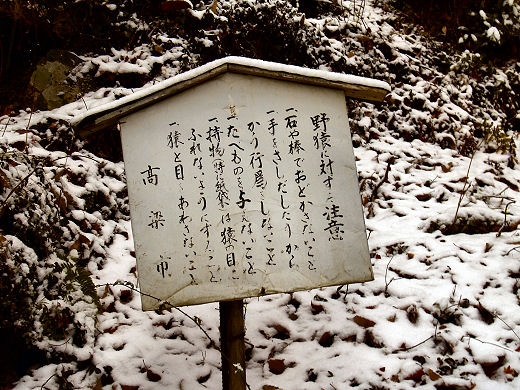 野猿に対する注意
一、石や棒でおどかさないこと
一、手をさしだしたりからかう行為をしないこと
一、たべものを与えないこと
一、持物(特に紙袋)は猿の目にふれないようにすること
一、猿と目をあわさないこと
高梁市